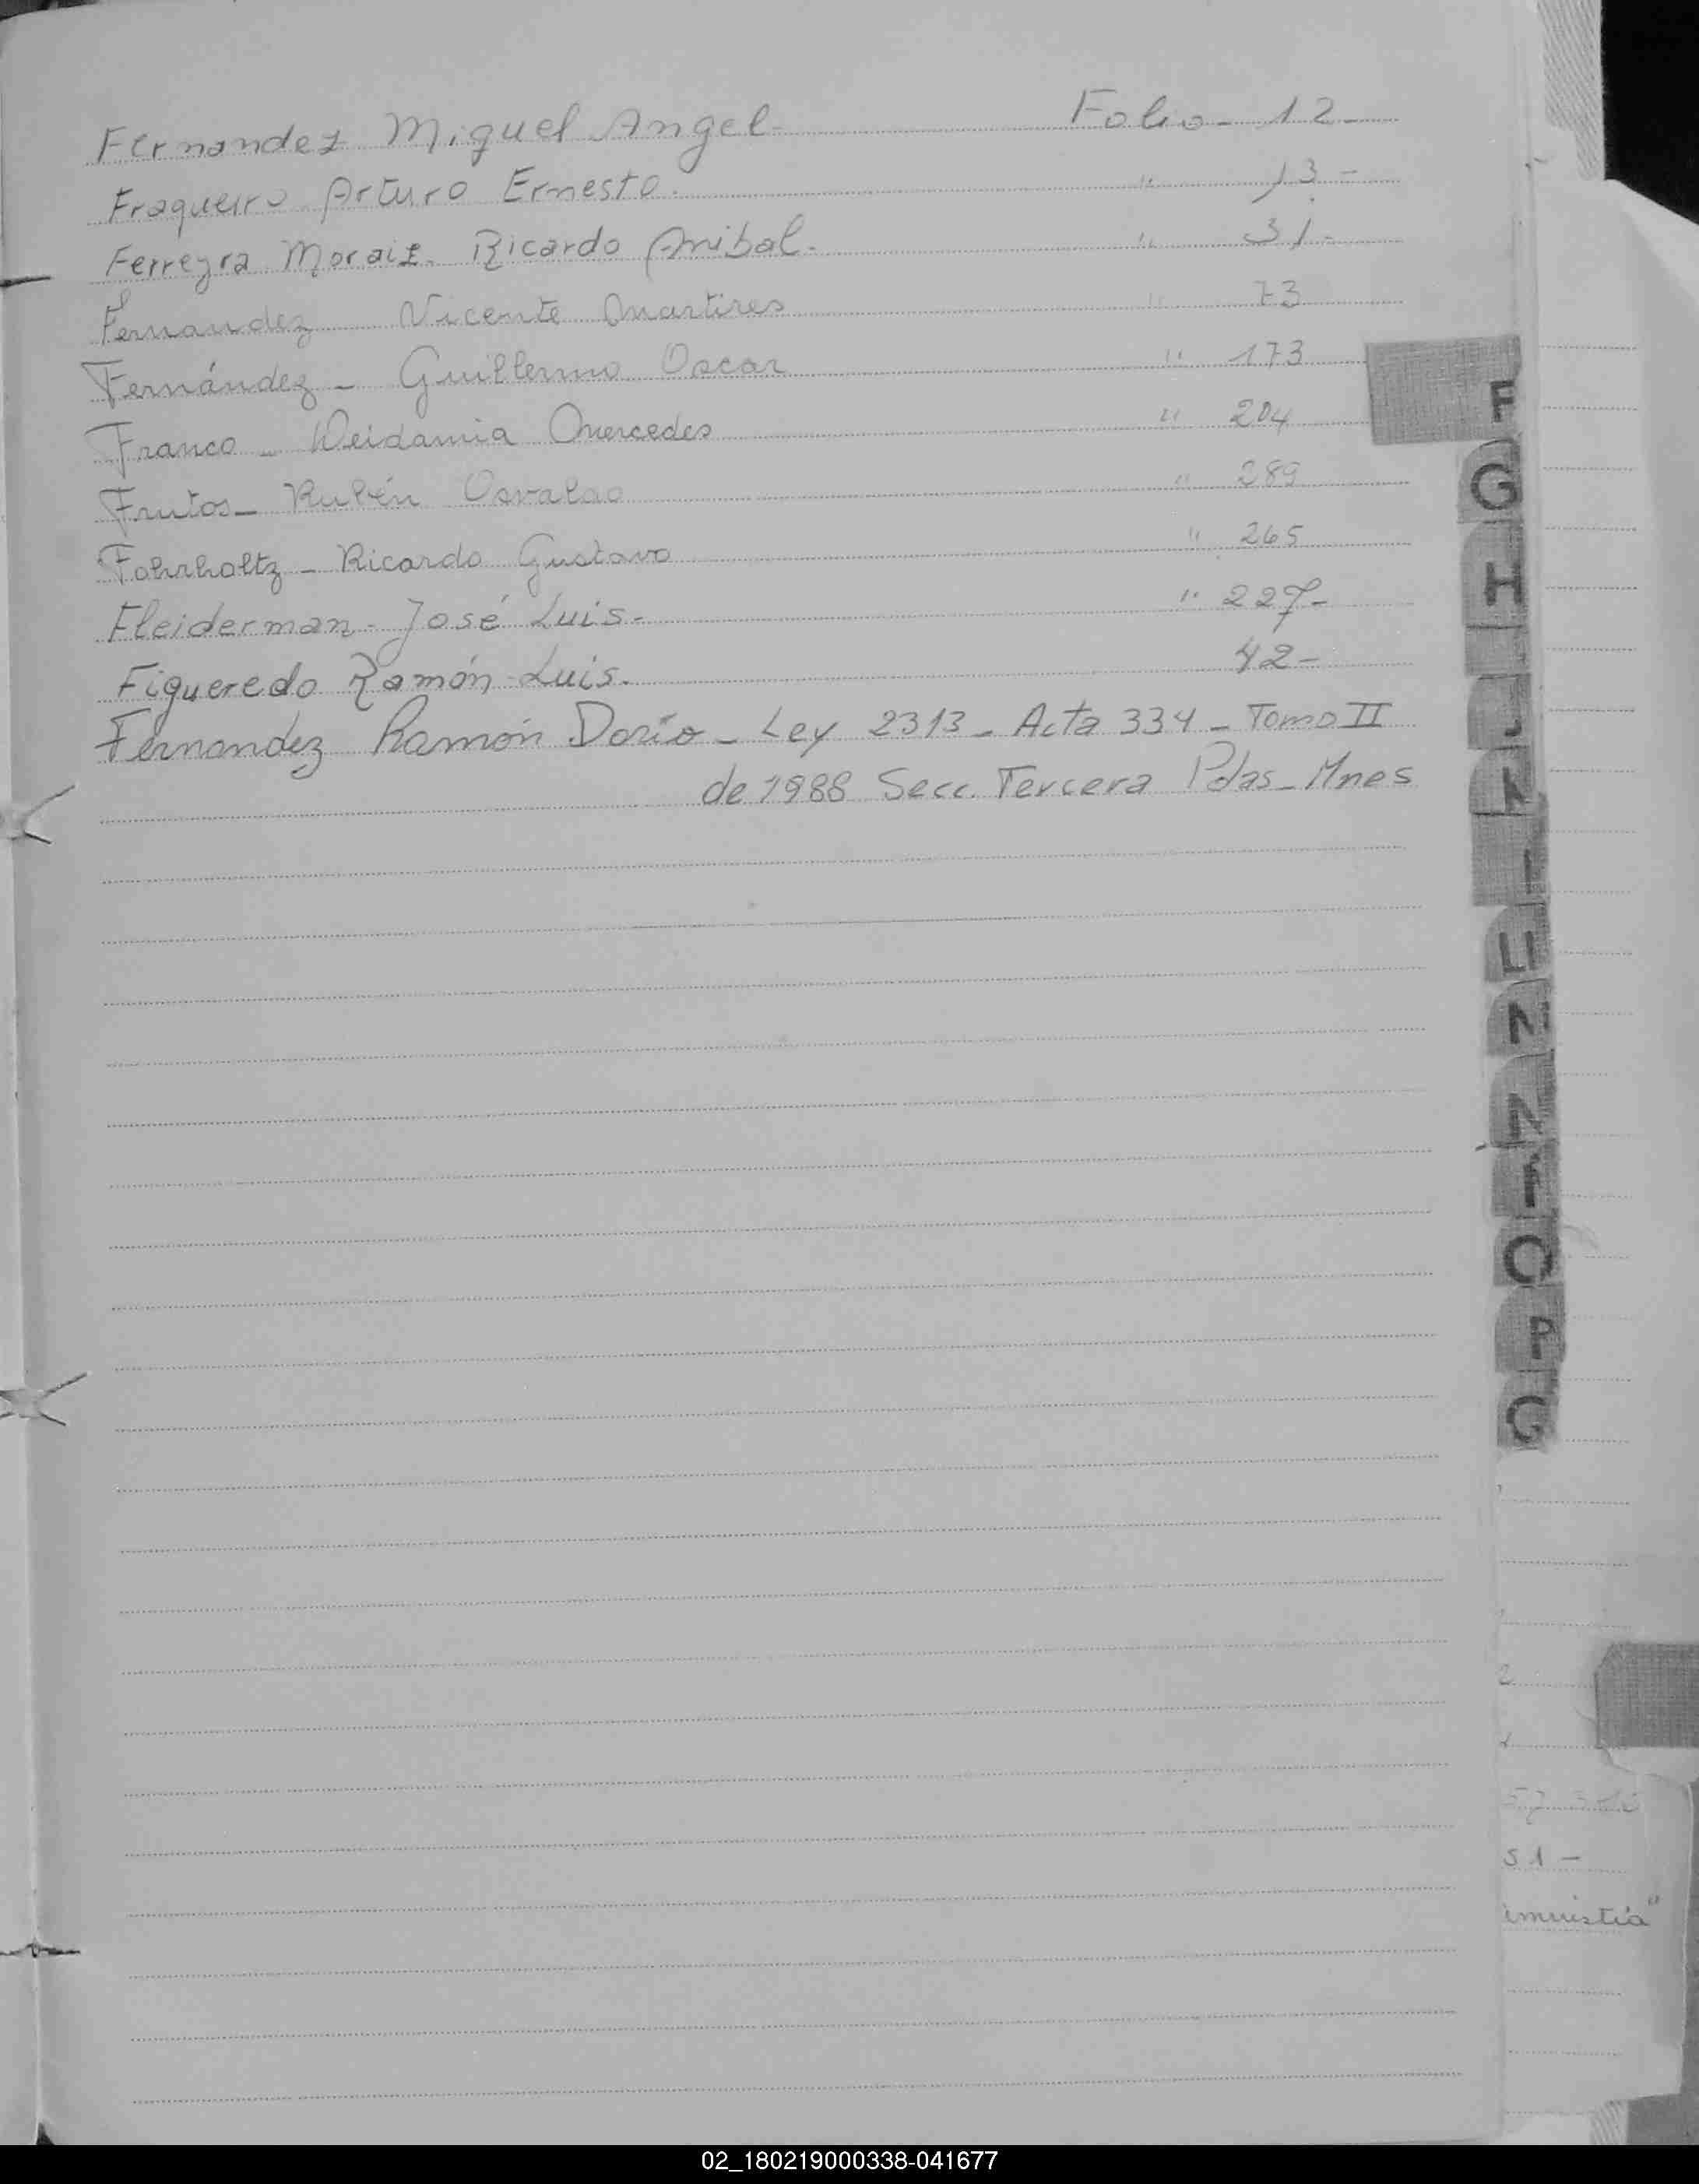 Fernandez Miguel Angel- Folio- 12-
Fraqueiro Arturo Ernesto. " 13-
Ferreyra Moraiz- Ricardo Anibal- " 31-
Fernandez Vicente Martires " 73
Fernández - Guillermo Oscar " 173
Franco - Deidamia Mercedes " 204
Frutos - Rubén Osvaldo " 289
Fahrholtz - Ricardo Gustavo " 265
Fleiderman - José Luis- " 227-
Figueredo Ramón Luis. 42-
Fernandez Ramón Dario - Ley 2313 - Acta 334 - Tomo II
de 1988 Secc. Tercera Pdas - Mnes
F
G
H
J
N
I
Ll
N
N
O
P
51-
02_180219000338-041677